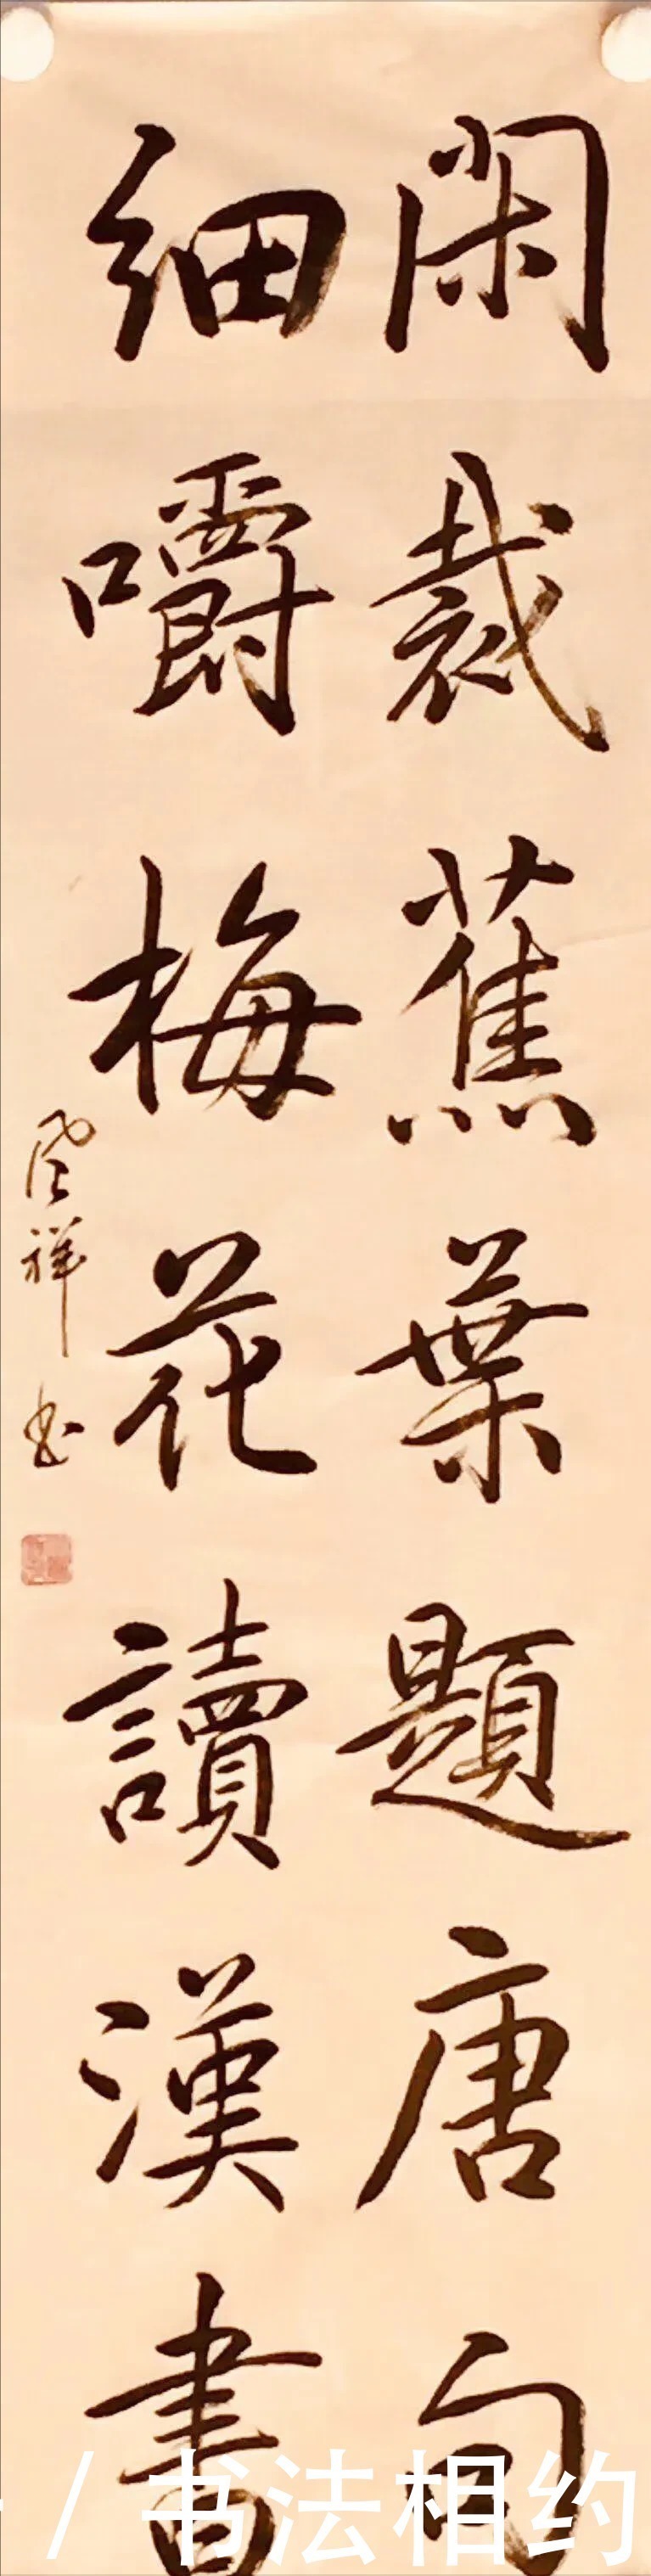 閑裁蕉葉題唐句
細嚼梅花讀漢書
祥书
/书法相约